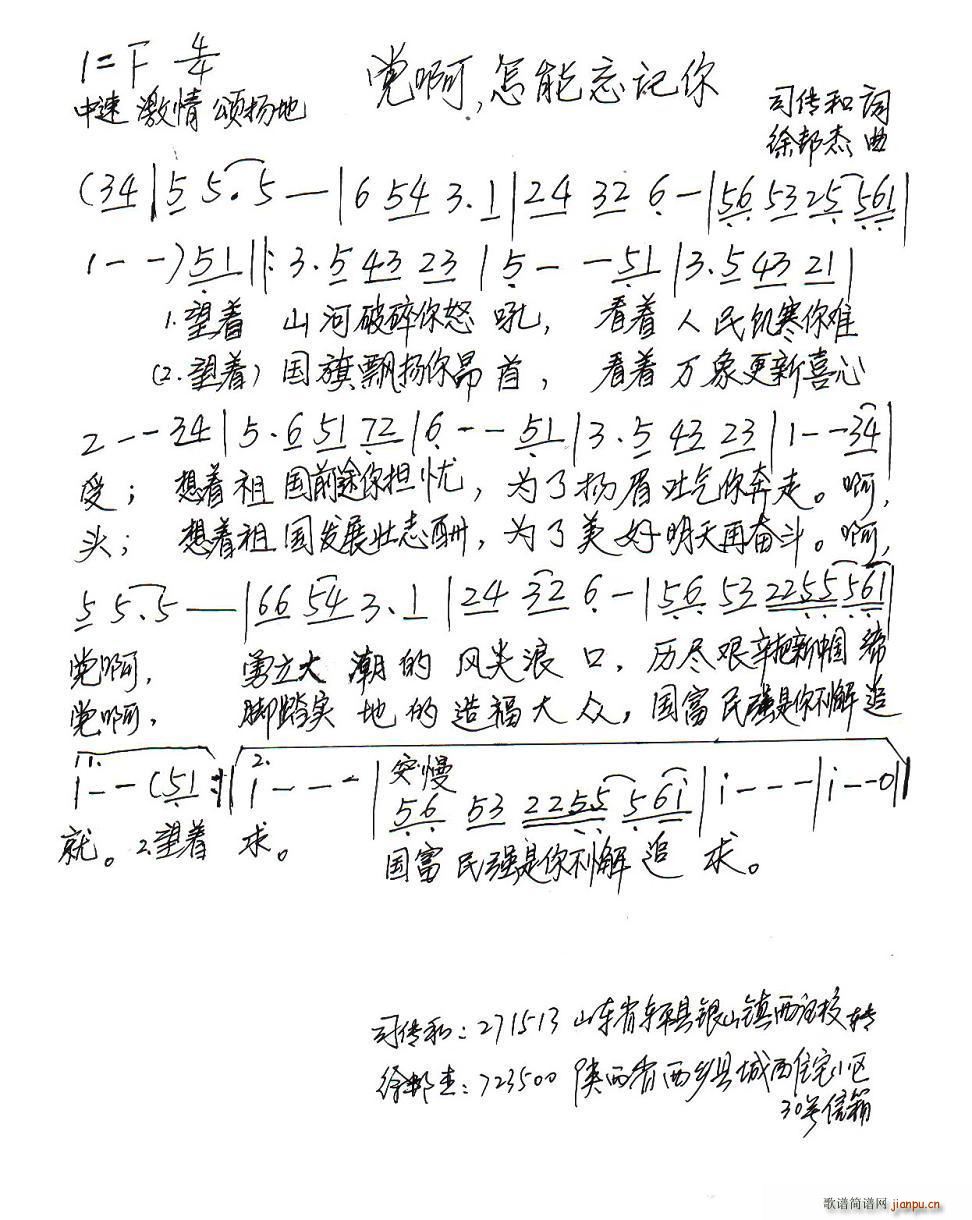 1=F 4/4
党啊,怎能忘记你
中速 激情 颂扬地
司传和 词
徐邦杰 曲
(34|5 5. 5 —|6 54 3. 1|24 32 6 -|56 53 25 561|
1 - - ) 51 ‖: 3. 5 43 23 | 5 - - 51 |3. 5 43 21|
1.望着 山河破碎你怒吼, 看着人民饥寒你难
(2.望着)国旗飘扬你昂首, 看着万象更新喜心
2 - - 34 | 5. 6 51 72 | 6 - - 51 | 3. 5 43 23 | 1 - - 34 |
受; 想着祖国前途你担忧, 为了扬眉吐气你奔走。啊,
头; 想着祖国发展壮志酬, 为了美好明天再奋斗。啊,
5 5. 5 — |66 54 3. 1 | 24 32 6 - | 56 53 2255 561|
党啊, 勇立大潮的风尖浪口, 历尽艰辛把新中国缔
党啊, 脚踏实地的造福大众, 国富民强是你不懈追
1.
2.
突慢
1 - - (51 :‖ 1 - - - | 56 53 2255 561 | 1 - - - | 1 - - 0 ‖
就。2.望着 求。 国富民强是你不懈追求。
司传和: 271513 山东省东平县银山镇西 校转
徐邦杰: 723500 陕西省西乡县城西住宅小区
30号信箱
歌谱简谱网 jianpu.cn